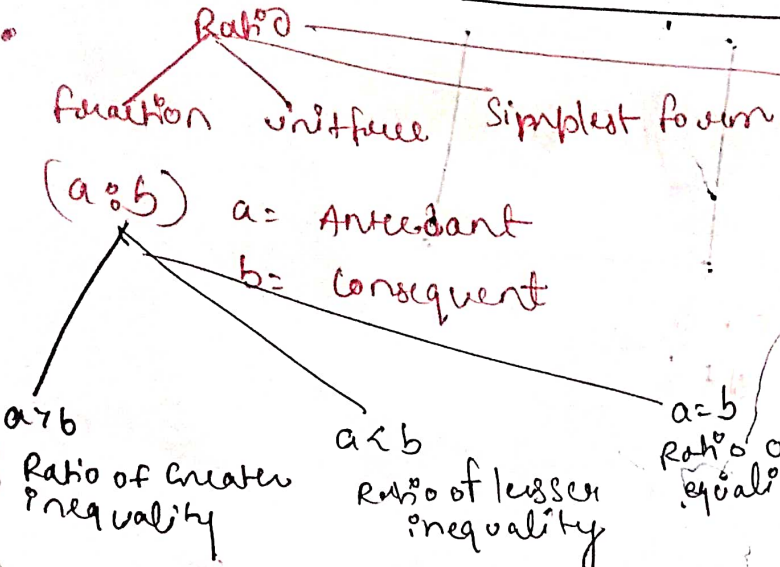 Ratio
fraction unitfree Simplest form
(a:b) a= Antecedant
b= Consequent
a>b a<b a=b
Ratio of Greater inequality
Ratio of lesser inequality
Ratio